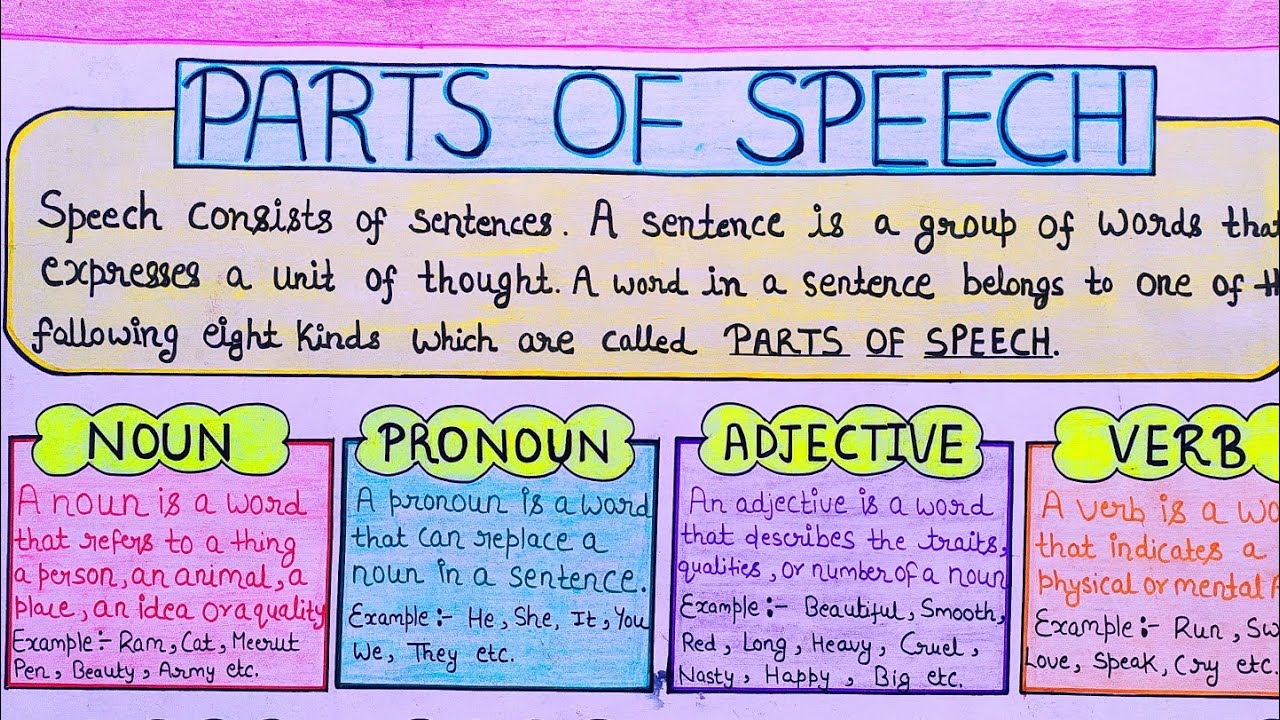 PARTS OF SPEECH
Speech consists of sentences. A sentence is a group of words
expresses a unit of thought. A word in a sentence belongs to one of
following eight kinds which are called PARTS OF SPEECH.
NOUN
A noun is a word
that refers to a thing
a person, an animal, a
place, an idea or a quality
Example:- Ram, Cat, Meerut
Pen, Beauty, Army etc.
PRONOUN
A pronoun is a word
that can replace a
noun in a sentence.
Example:- He, She, It, You
We, They etc.
ADJECTIVE
An adjective is a word
that describes the traits,
qualities, or number of a noun
Example:- Beautiful, Smooth,
Red, Long, Heavy, Cruel,
Nasty, Happy, Big etc.
VERB
A verb is a
that indicates a
physical or mental
Example:- Run,
Love, Speak, Cry etc.